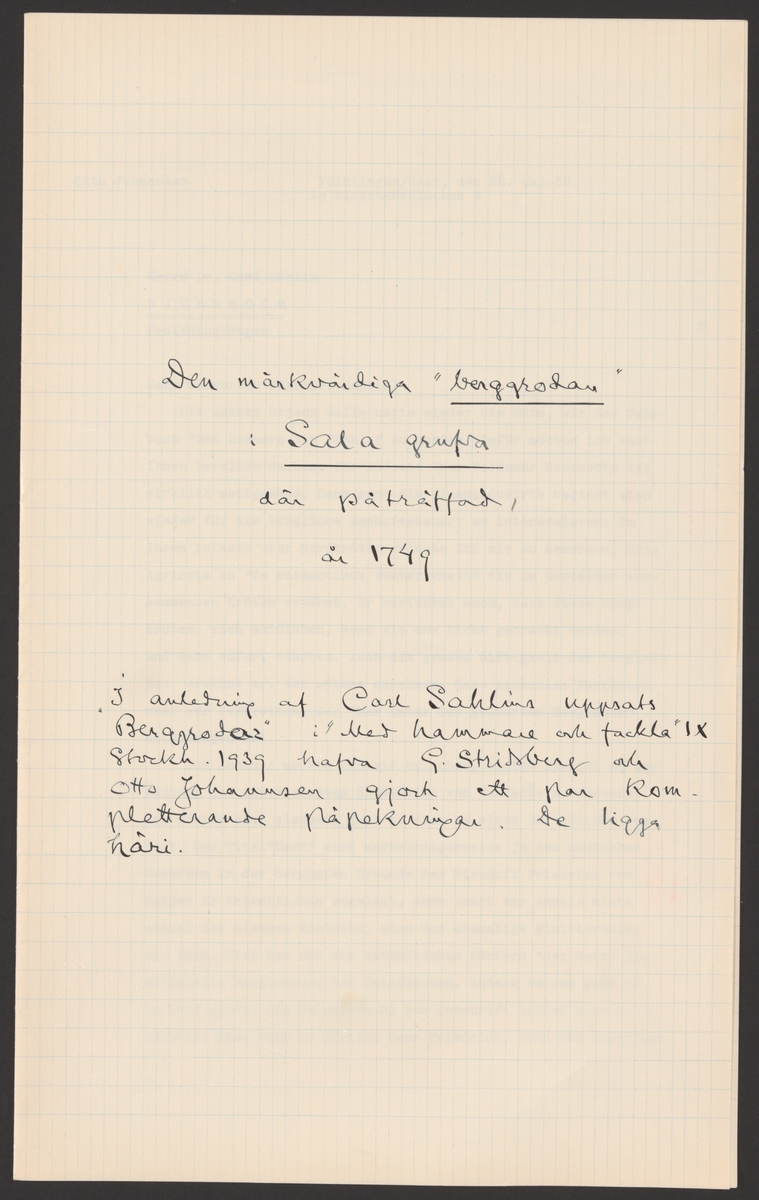 Den märkvärdiga "berggrodan"
i Sala grufva
där påträffad,
år 1749
I anledning af Carl Sahlins uppsats
"Berggrodor" i "Med hammare och fackla" IX
Stockh. 1939 hafva G. Stridsberg och
Otto Johannsen gjort ett par kom-
pletterande påpekningar. De ligga
häri.